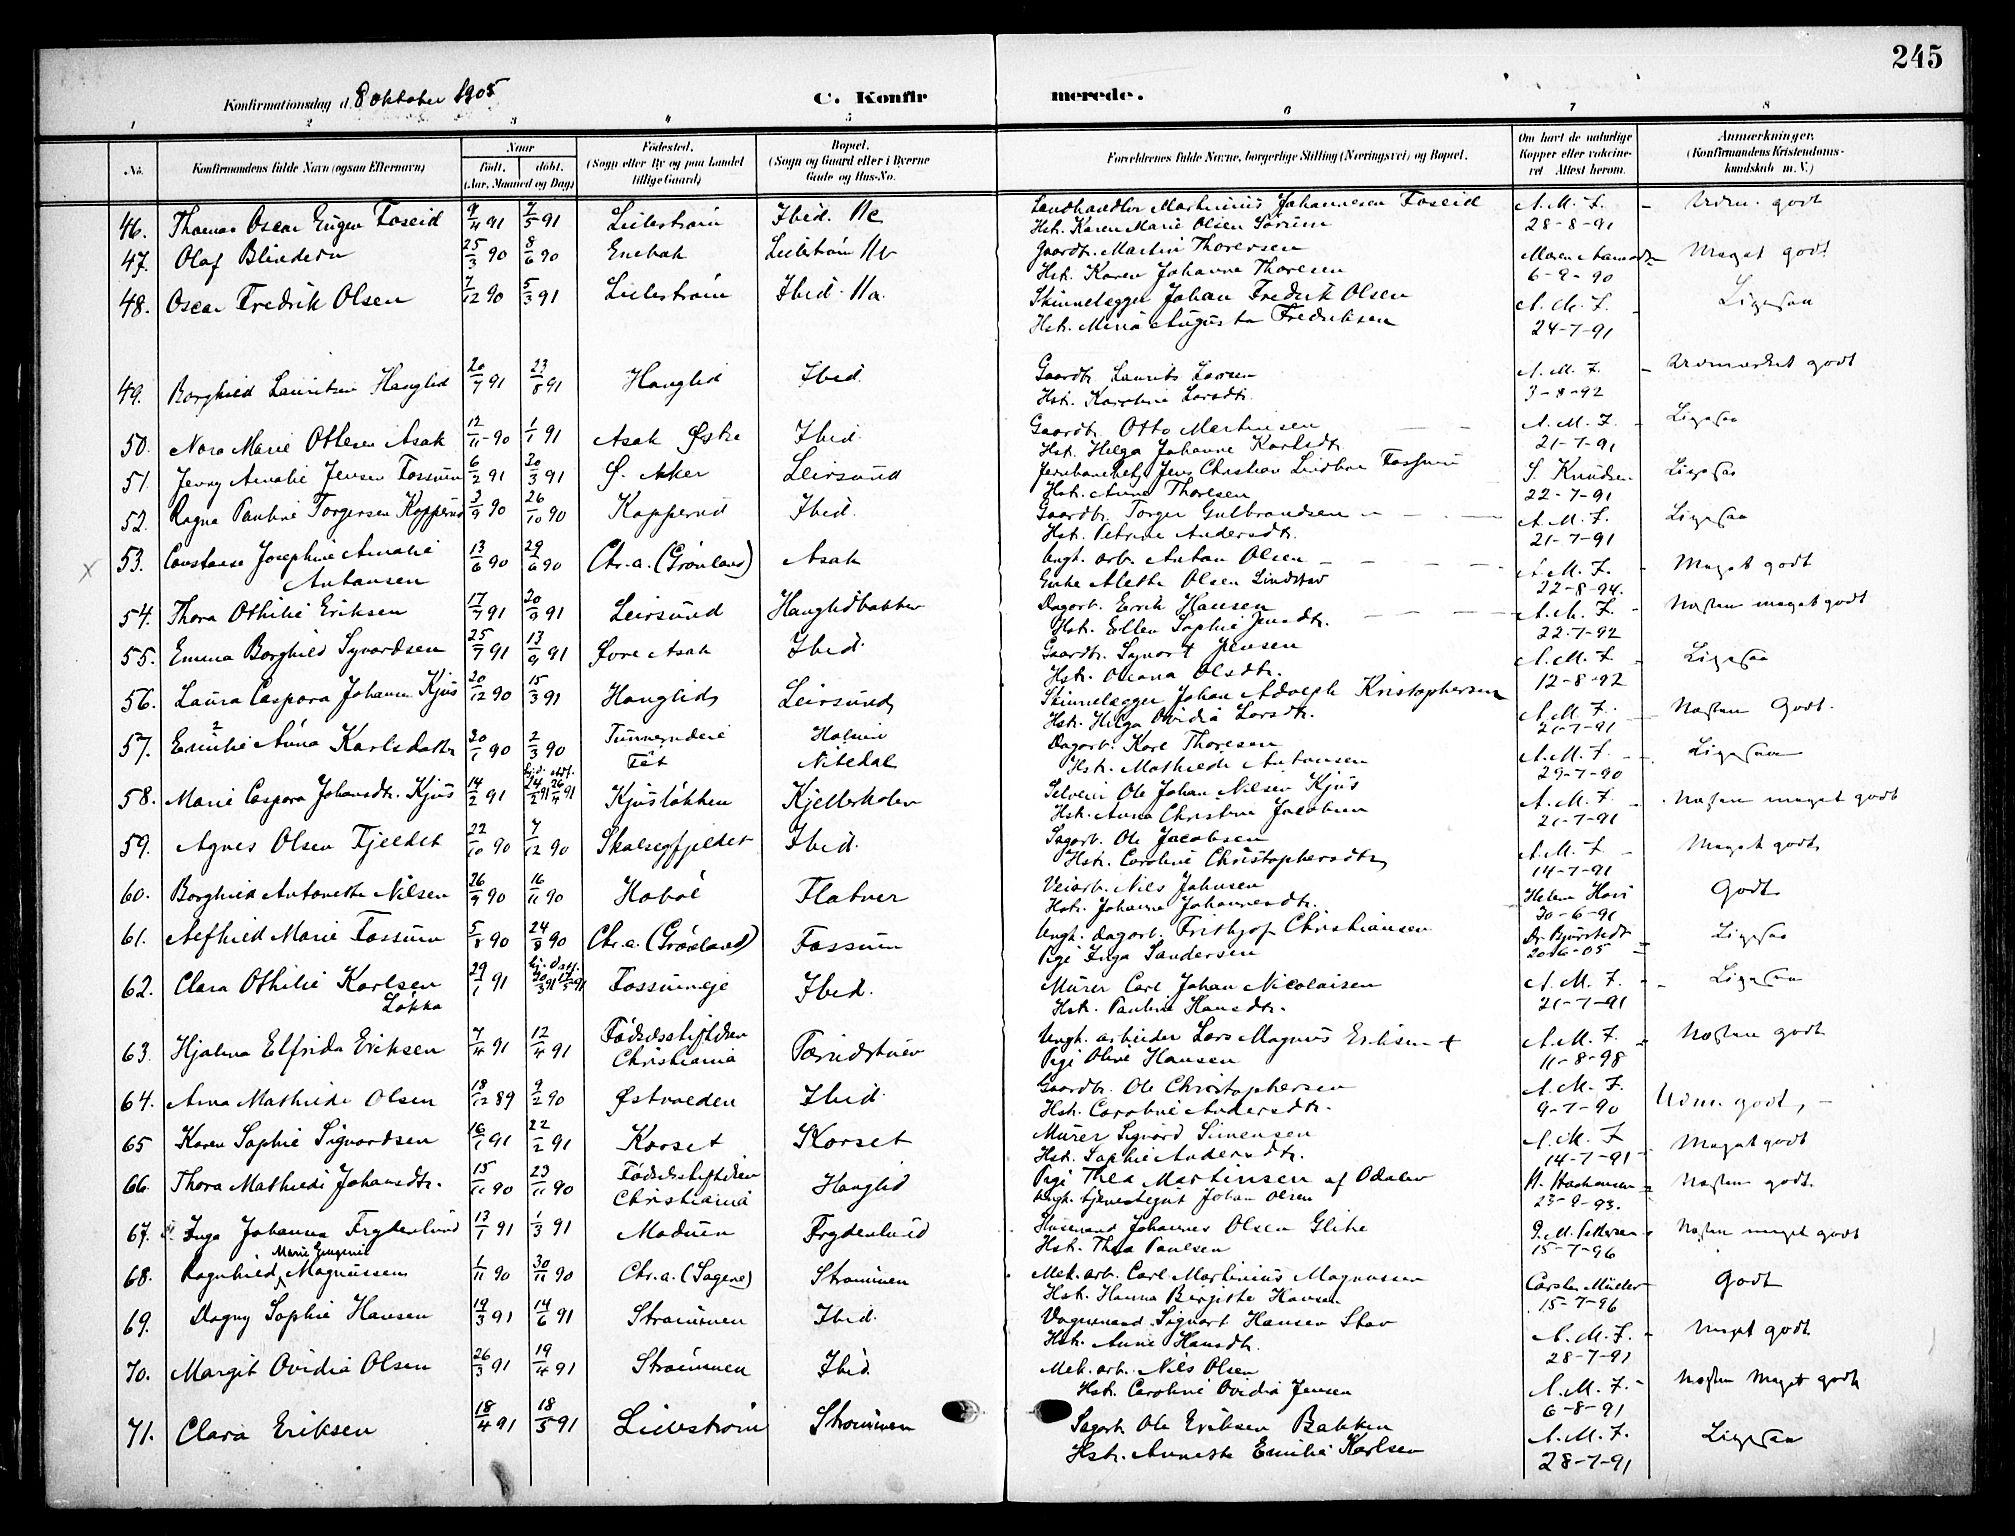 245
Konfirmationsdag d. 8 oktober 1905 C. Konfirmerede.
1 2 3 4 5 6 7 8
No. Konfirmandens fulde Navn (ogsaa Efternavn) Naar født. døbt. (Aar, Maaned og Dag) Fødested. (Sogn eller By og paa Landet tillige Gaard) Bopæl. (Sogn og Gaard eller i Byerne Gade og Hus-No. Forældrenes fulde Navne, borgerlige Stilling (Næringsvei) og Bopæl. Om havt de naturlige Kopper eller vakcineret Attest herom. Anmærkninger. (Konfirmandens Kristendomskundskab m. V.)
46. Thomas Oscar Eugen Foseid 9/4 91 7/5 91 Lillestrøm Ibid. Landhandler Martinius Johannesen Foseid A. M. F. Udm. godt
Hst. Karen Marie Olsen Sørum 28-8-91
47. Olaf Blindern 25/3 90 8/6 90 Enebak Lillestrøm Gaardbr. Martin Thoresen Meget godt
Hst. Karen Johanne Thoresen 6-9-90
48. Oscar Fredrik Olsen 7/12 90 5/3 91 Lillestrøm Ibid. Skinnelægger Johan Fredrik Olsen A. M. F. Ligesaa
Hst. Maria Augusta Fredriksen 24-7-91
49. Borghild Lauritsen Hanglid 20/7 91 23/8 91 Hanglid Ibid. Gaardbr. Laurits Larsen A. M. F. Udmærket godt
Hst. Karoline Larsdtr. 3-8-92
50. Nora Marie Ottesen Asak 12/11 90 1/1 91 Asak Østre Ibid. Gaardbr. Otto Martinsen A. M. F. Ligesaa
Hst. Helga Johanne Karlsdtr. 21-7-91
51. Jenny Amalie Jensen Fossum 6/2 91 30/3 91 Ø. Aker Leirsund Jens Christian Fossum S. Knudsen Ligesaa
Hst. Anne Thoresen 22-7-91
52. Ragna Pauline Torgersen Kopperud 3/9 90 26/10 90 Kopperud Ibid. Gaardbr. Torger Gulbrandsen A. M. F. Ligesaa
Hst. Petrine Andersdtr. 21-7-91
53. Constanse Josephine Amalie 13/6 90 29/6 90 Chr.a. (Grønland) Asak Ungk. arb. Anton Olsen A. M. F. Meget godt
Antonsen Enke Alette Olsen Lindstad 22-8-94.
54. Thora Othilie Eriksen 17/7 91 20/9 91 Leirsund Hanglidbakken Dagarb. Errik Hansen A. M. F. Næsten meget godt
Hst. Ellen Sophie Jensdtr. 22-7-92
55. Emma Borghild Syvardsen 25/7 91 13/9 91 Øvre Asak Ibid. Gaardbr. Syvart Jensen A. M. F. Ligesaa
Hst. Oleana Olsdtr. 12-8-92
56. Laura Caspara Johansen Kjus 20/12 90 15/3 91 Hanglid Leirsund Skinnelægger Johan Adolph Kristophersen A. M. F. Næsten Godt.
Hst. Helga Ovidia Larsdtr. 21-7-91
57. Emilie Anna Karlsdatter 20/1 90 2/3 90 Fet Nitedal Dagarb. Karl Thoresen A. M. F. Ligesaa
Hst. Mathilde Antonsen 29-7-90
58. Marie Caspara Johansdtr. Kjus 14/2 91 24/2 91 26/4 91 Kjusløkken Kjellerholen Selveier Ole Johan Nilsen Kjus A. M. F. Næsten meget godt
Hst. Anna Christine Jacobsen 21-7-91
59. Agnes Olsen Fjeldet 22/10 90 7/12 90 Ibid. Sagarb. Ole Jacobsen A. M. F. Meget godt
Hst. Caroline Christophersdtr. 14-7-91
60. Borghild Antonette Nilsen 26/9 90 16/11 90 Hobøl Flatner Veiarb. Nils Johnsen Helene Godt
Hst. Johanne Johannesdtr. 30-6-91
61. Alfhild Marie Fossum 5/8 90 24/8 90 Chr.a. (Grønland) Fossum Ungk. dagarb. Frithjof Christiansen Dr. Bjørstedt Ligesaa
Pige Inga Sandersen 20/6-05
62. Clara Othilie Karlsen 29/1 91 Fossumeje Ibid. Murer Carl Johan Nicolaisen A. M. F. Ligesaa
Løkka Hst. Pauline Hansdtr. 21-7-91
63. Hjalma Elfrida Eriksen 7/4 91 12/4 91 Fødselsstiftelsen Christiania Ungk. arbeider Lars Magnus Eriksen + A. M. F. Næsten godt
Pige Oline Hansen 11-8-98
64. Anna Mathilde Olsen 18/12 89 9/2 90 Østvolden Ibid. Gaardbr. Ole Christophersen A. M. F. Udm. godt,
Hst. Caroline Andersdtr. 9-7-90
65 Karen Sophie Sigvardsen 16/1 91 22/2 91 Korset Korset Murer Sigvard Simensen A. M. F Meget godt
Hst. Sophie Andersdtr. 14-7-91
66. Thora Mathilde Johansdtr. 15/11 90 23/11 90 Fødselsstiftelsen Christiania Hanglid Pige Thea Martinsen af Odalen Næsten godt.
Ungk. tjenestegut Johan Olsen 23-9-93.
67. Inga Johanna Frydenlund 13/1 91 1/3 91 Frydenlund Husmand Johannes Olsen Næsten meget godt
Hst. Thea Paulsen 15-7-96
68. Ragnhild Marie Eugenie Magnussen 1/11 90 30/11 90 Chr.a. (Sagene) Strømmen Mek. arb. Carl Martinius Magnussen Carsten Müller Godt
Hst. Hanna Birgitte Hansen 15-7-96
69. Dagny Sophie Hansen 19/3 91 14/6 91 Strømmen Ibid. Vognmand Sigvart Hansen A. M. F. Meget godt
Hst. Anne Hansdtr. 28-7-91
70. Margit Ovidia Olsen 26/3 91 19/4 91 Strømmen Ibid. Mek. arb. Nils Olsen A. M. F. Næsten Meget godt
Hst. Caroline Ovidia Jensen 6-8-91
71. Clara Eriksen 18/4 91 18/5 91 Lillestrøm Strømmen Sagarb. Ole Eriksen Bakken A. M. F. Ligesaa
Hst. Annette Emilie Karlsen 28-7-91